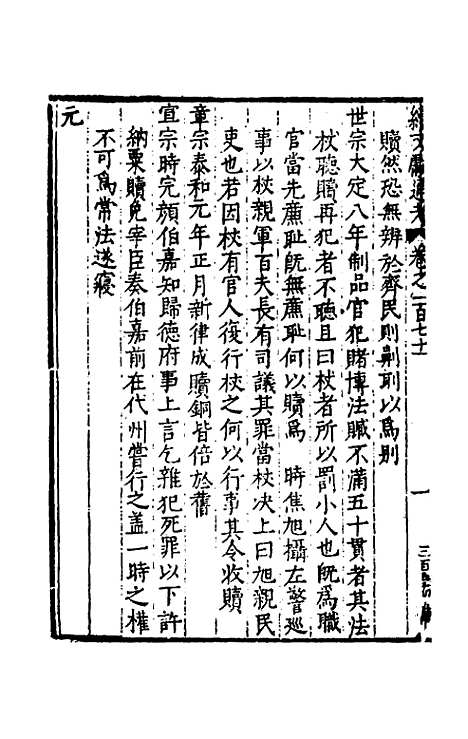 續文獻通考 卷之一百七十
贖然恐無辨於齊民則劓刵以爲别
世宗大定八年制品官犯賭博法贓不滿五十貫者其法
杖聽贖再犯者不聽且曰杖者所以罰小人也旣爲職
官當先廉耻旣無廉耻何以贖爲 時焦旭攝左警廵
事以杖親軍百夫長有司議其罪當杖决上曰旭親民
吏也若因杖有官人復行杖之何以行事其令收贖
章宗泰和元年正月新律成贖銅皆倍於舊
宣宗時完顔伯嘉知歸德府事上言乞雜犯死罪以下許
納粟贖免宰臣奏伯嘉前在代州嘗行之盖一時之權
不可爲常法遂寢
元